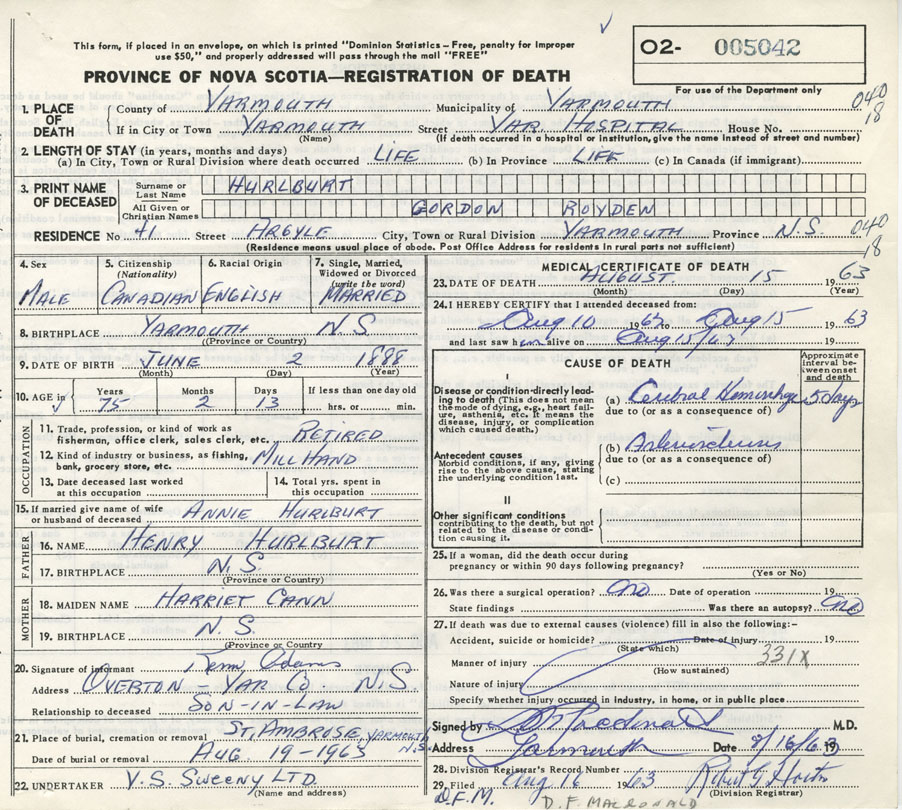 This form, if placed in an envelope, on which is printed "Dominion Statistics – Free, penalty for improper
use $50," and properly addressed will pass through the mail "FREE"
O2- 005042
For use of the Department only
PROVINCE OF NOVA SCOTIA—REGISTRATION OF DEATH
1. PLACE OF DEATH
County of YARMOUTH Municipality of YARMOUTH 040
If in City or Town YARMOUTH Street YAR. HOSPITAL House No. 18
(Name) (If death occurred in a hospital or institution, give the name instead of street and number)
2. LENGTH OF STAY (in years, months and days)
(a) In City, Town or Rural Division where death occurred LIFE (b) In Province LIFE (c) In Canada (if immigrant)
3. PRINT NAME OF DECEASED
Surname or Last Name HURLBURT
All Given or Christian Names GORDON ROYDEN
RESIDENCE No 41 Street ARGYLE City, Town or Rural Division YARMOUTH Province N.S. 040 18
(Residence means usual place of abode. Post Office Address for residents in rural parts not sufficient)
4. Sex MALE
5. Citizenship (Nationality) CANADIAN
6. Racial Origin ENGLISH
7. Single, Married, Widowed or Divorced (write the word) MARRIED
8. BIRTHPLACE YARMOUTH N.S.
(Province or Country)
9. DATE OF BIRTH JUNE 2 1888
(Month) (Day) (Year)
10. AGE in Years 75 Months 2 Days 13 If less than one day old hrs. or min.
OCCUPATION
11. Trade, profession, or kind of work as fisherman, office clerk, sales clerk, etc. RETIRED
12. Kind of industry or business, as fishing, bank, grocery store, etc. MILL HAND
13. Date deceased last worked at this occupation
14. Total yrs. spent in this occupation
15. If married give name of wife or husband of deceased ANNIE HURLBURT
FATHER
16. NAME HENRY HURLBURT
17. BIRTHPLACE N.S.
(Province or Country)
MOTHER
18. MAIDEN NAME HARRIET CANN
19. BIRTHPLACE N.S.
(Province or Country)
20. Signature of informant Adams
Address OVERTON – YAR CO. N.S.
Relationship to deceased SON-IN-LAW
21. Place of burial, cremation or removal ST. AMBROSE, YARMOUTH N.S.
Date of burial or removal AUG. 19-1963
22. UNDERTAKER V.S. SWEENY LTD.
(Name and address)
MEDICAL CERTIFICATE OF DEATH
23. DATE OF DEATH AUGUST 15 1963
(Month) (Day) (Year)
24. I HEREBY CERTIFY that I attended deceased from:
Aug 10 1963 to Aug 15 1963
and last saw him alive on Aug 15/63
CAUSE OF DEATH
Approximate interval between onset and death
I
Disease or condition-directly leading to death (This does not mean the mode of dying, e.g., heart failure, asthenia, etc. It means the disease, injury, or complication which caused death.)
(a) Cerebral Hemorrhage 5 days
due to (or as a consequence of)
Antecedent causes
Morbid conditions, if any, giving rise to the above cause, stating the underlying condition last.
(b)
due to (or as a consequence of)
(c)
II
Other significant conditions contributing to the death, but not related to the disease or condition causing it.
25. If a woman, did the death occur during pregnancy or within 90 days following pregnancy?
(Yes or No)
26. Was there a surgical operation? no Date of operation 19
State findings Was there an autopsy? no
27. If death was due to external causes (violence) fill in also the following:-
Accident, suicide or homicide? Date of injury 19
(State which)
Manner of injury 331X
(How sustained)
Nature of injury
Specify whether injury occurred in industry, in home, or in public place
Signed by M.D.
Address Yarmouth Date 8/16/63 19
28. Division Registrar's Record Number
29. Filed Aug 16 1963 Robert G.
(Division Registrar)
D.F.M. D. F. MACDONALD